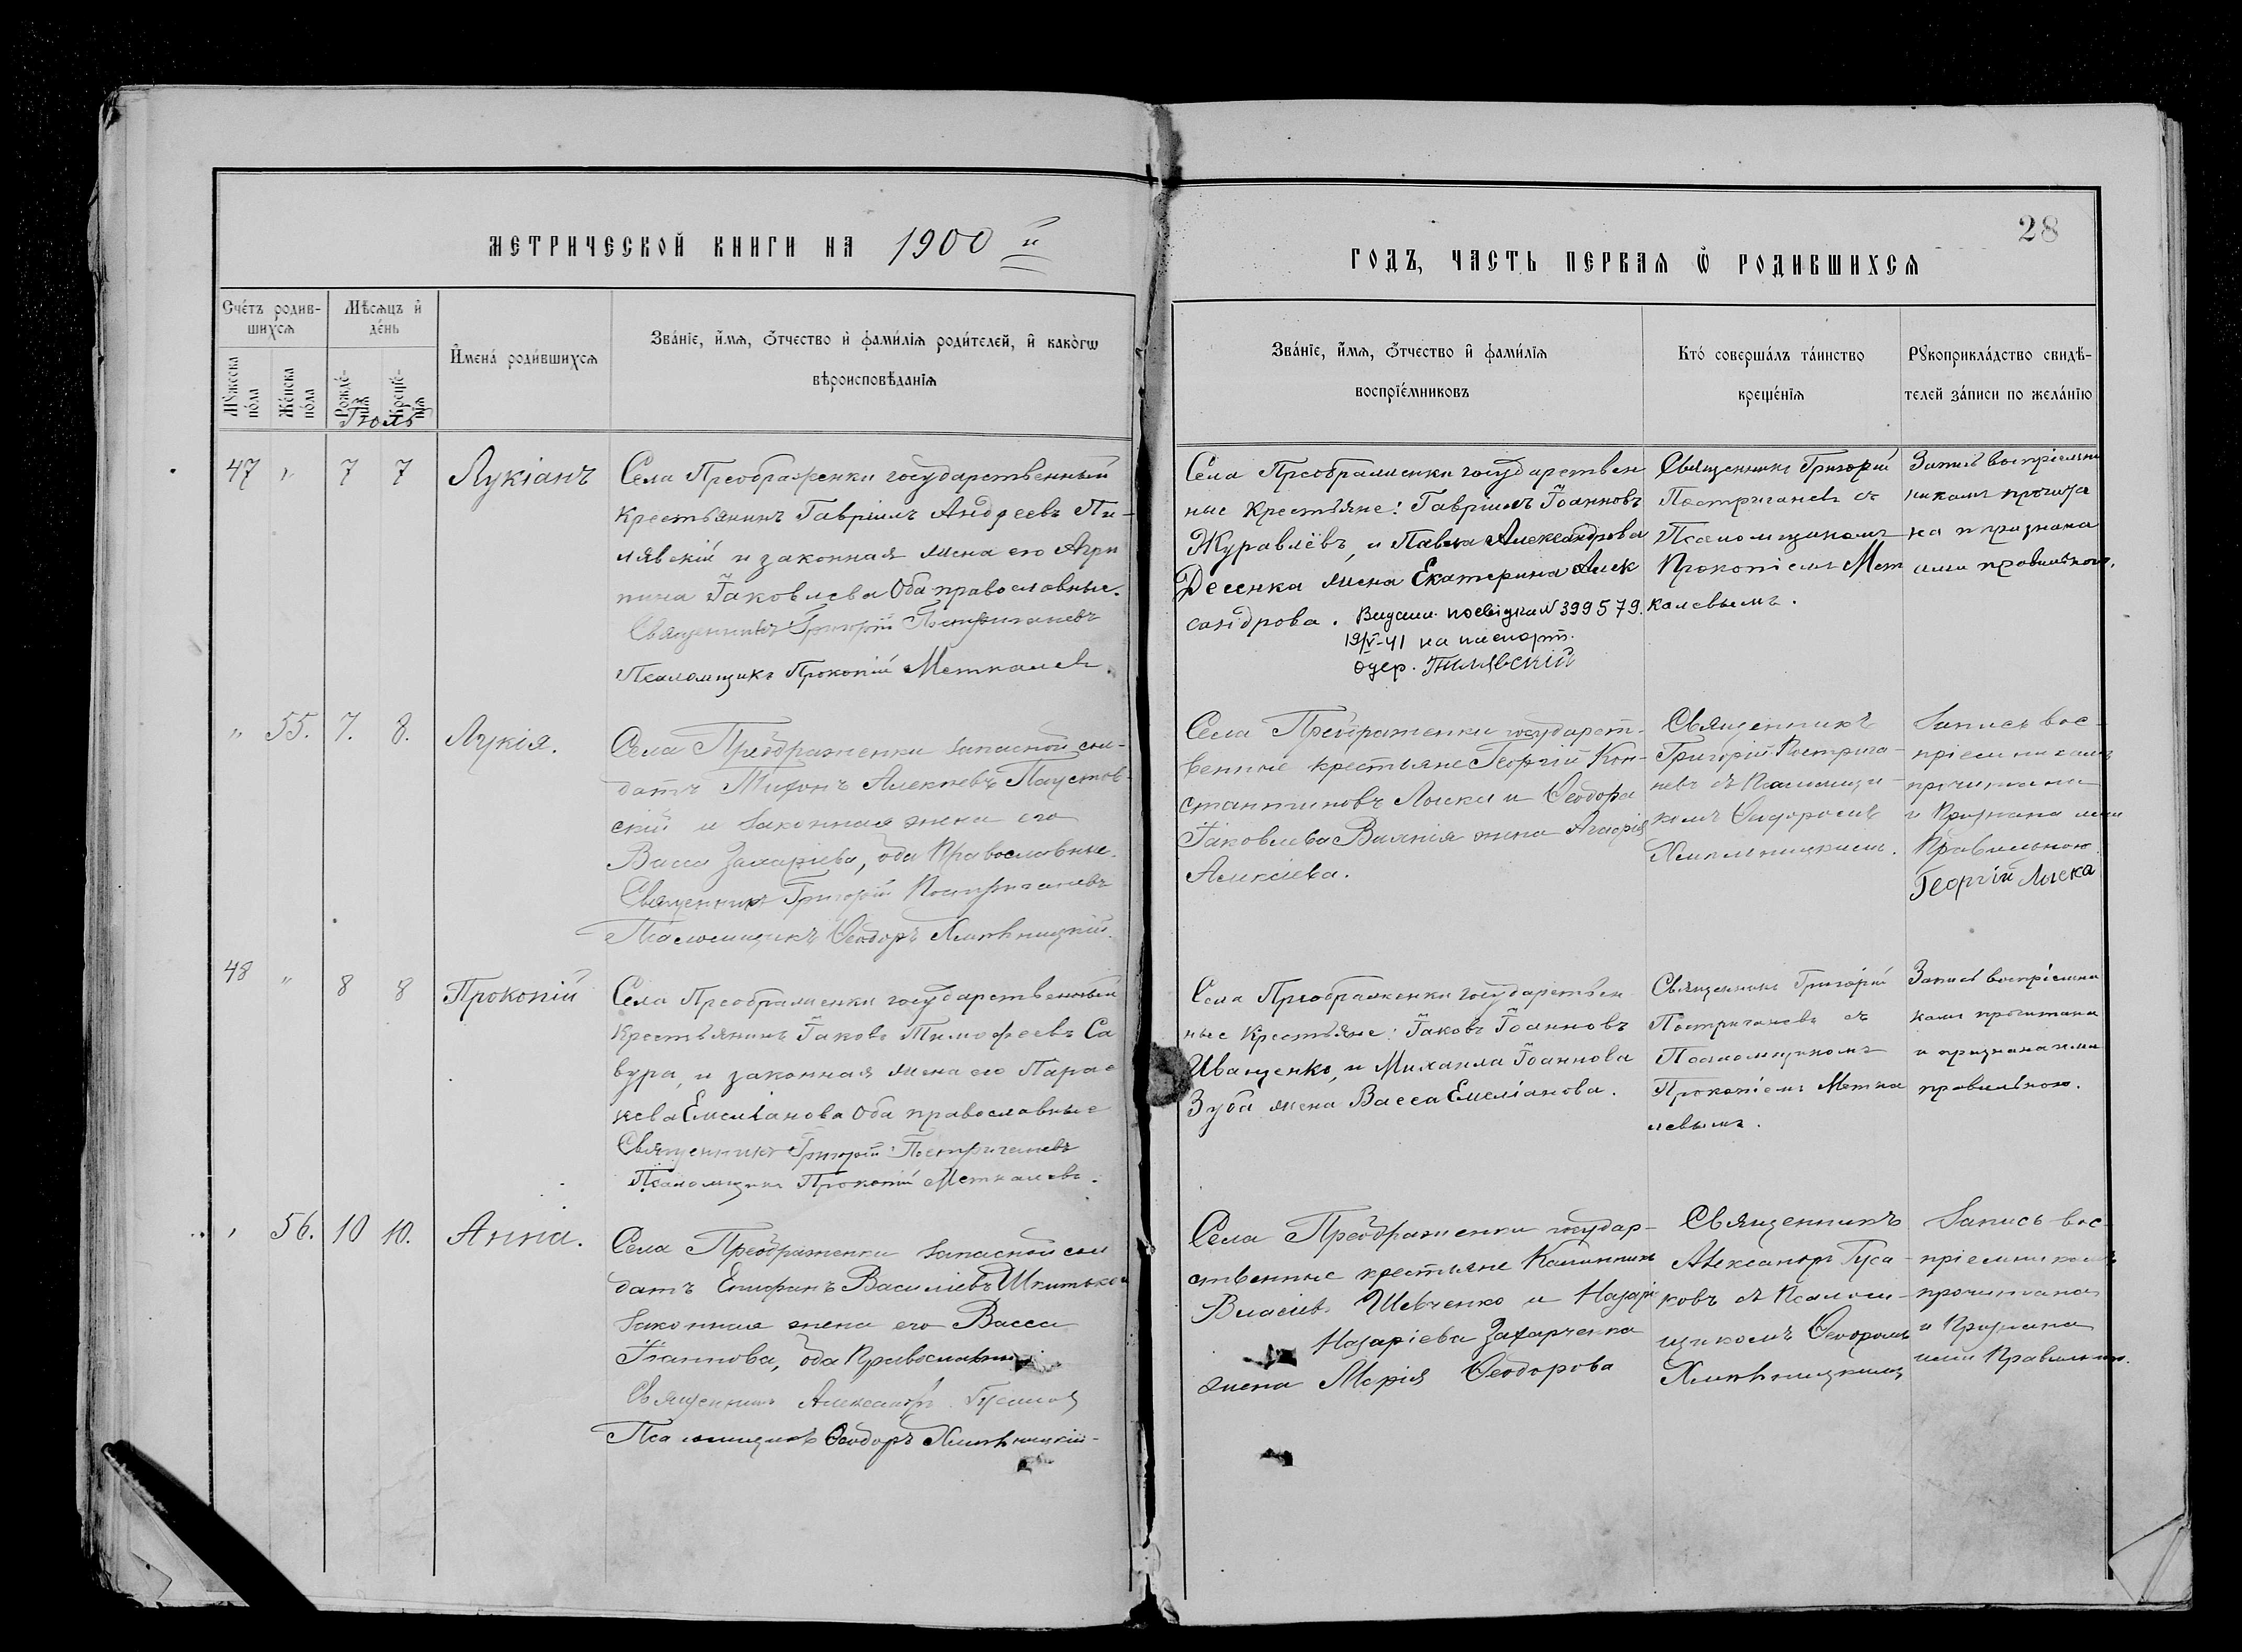 МЕТРИЧЕСКОЙ КНИГИ НА 1900 й
ГОДЪ, ЧАСТЬ ПЕРВАЯ Ѡ РОДИВШИХСЯ
28
Счетъ родив-
шихся
Мѣсяцъ и
день
Мужеска
пола
Женска
пола
Рожде-
нія
Креще-
нія
Іюль
Имена родившихся
Званіе, имя, отчество и фамилія родителей, и какогѡ
вѣроисповѣданія
Званіе, имя, отчество и фамилія
воспріемниковъ
Кто совершалъ таинство
крещенія
Рукоприкладство свидѣ-
телей записи по желанію
47 " 7 7 Лукіанъ
Села Преображенки государственный
крестьянинъ Гавріилъ Андреевъ Пи-
лявскій и законная жена его Агри
пина Іаковлева Оба православные.
Священникъ Григорій Постригачевъ
Псаломщикъ Прокопій Меткалевъ.
Села Преображенки государствен
ные крестьяне: Гавріилъ Іоанновъ
Журавлёвъ, и Павла Александрова
Десенка жена Екатерина Алек
сандрова. Видали посвідка N 399579.
19/V-41 на паспорт.
Одер. Пилявский
Священникъ Григорій
Постригачевъ съ
Псаломщикомъ
Прокопіемъ Мет
калевымъ.
Запись воспріемни
никами прочита
на и признана
ими правильною.
" 55. 7. 8. Лукія.
Села Преображенки запасной сол-
датъ
Паустов-
скій и законная жена его
Васса Захаріева, оба Православные.
Священникъ Григорій Постригачевъ
Псаломщикъ Ѳеодоръ Хмѣльницкій.
Села Преображенки государст-
венные крестьяне Георгій Кон-
стантиновъ Лыска и Ѳеодора
Іаковлева жена
Алексіева.
Священникъ
Григорій Пострига-
чевъ съ Псаломщи-
комъ Ѳеодоромъ
Хмельницкимъ.
Запись вос-
пріемниками
прочитана
и Признана ими
Правильною.
Георгій Лыска
48 " 8 8 Прокопій
Села Преображенки государственный
крестьянинъ Іаковъ Тимофеевъ Са
вура, и законная жена его Парас
кева Емеліанова Оба православные
Священникъ Григорій Постригачевъ
Псаломщикъ Прокопій Меткалевъ.
Села Преображенки государствен
ные крестьяне: Іаковъ Іоанновъ
Иващенко, и Михаила Іоаннова
Зуба жена Васса Емеліанова.
Священникъ Григорій
Постригачевъ съ
Псаломщикомъ
Прокопіемъ Метка
левымъ.
Запись воспріемни
ками прочитана
и признана ими
правильною.
" 56. 10 10. Анна.
Села Преображенки запасной сол
датъ Епифанъ Василіевъ
законная жена его Васса
Іоаннова, оба Православные
Священникъ Александръ Гусаковъ
Псаломщикъ Ѳеодоръ Хмѣльницкій-
Села Преображенки государ-
ственные крестьяне Каллиникъ
Власіевъ Шевченко и
Назаріева Захарченка
жена Марія Ѳеодорова
Священникъ
Александръ Гуса-
ковъ съ Псалом-
щикомъ Ѳеодоромъ
Хмѣльницкимъ
Запись вос-
пріемниками
прочитана
и Признана
ими Правильною.